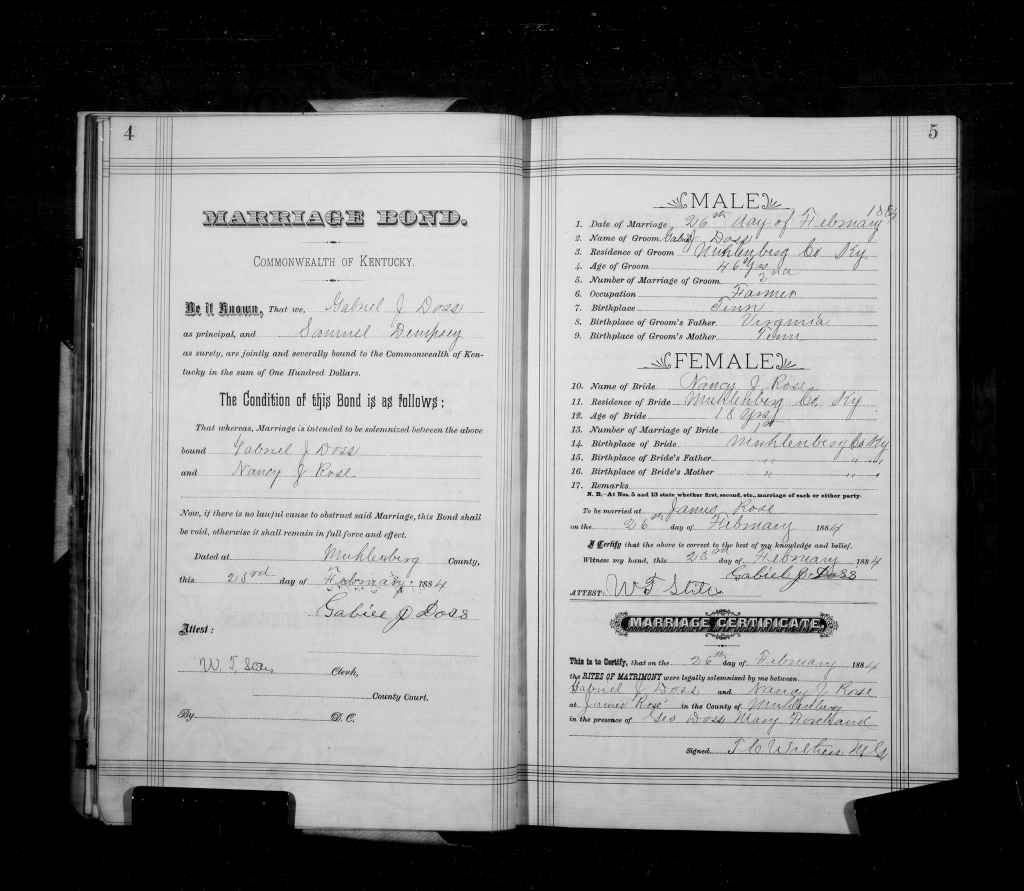 4
MARRIAGE BOND.
COMMONWEALTH OF KENTUCKY.
Be it Known, That we, Gabriel J Doss
as principal, and Samuel Dempsey
as surety, are jointly and severally bound to the Commonwealth of Ken-
tucky in the sum of One Hundred Dollars.
The Condition of this Bond is as follows:
That whereas, Marriage is intended to be solemnized between the above
bound Gabriel J Doss
and Nancy J Rose
Now, if there is no lawful cause to obstruct said Marriage, this Bond shall
be void, otherwise it shall remain in full force and effect.
Dated at Muhlenberg County,
this 23rd day of February 1884
Gabiel J Doss
Attest:
W. T. Clerk,
County Court.
By D. C.
5
MALE
1. Date of Marriage 26th day of February 1884
2. Name of Groom Gabriel J Doss
3. Residence of Groom Muhlenberg Co Ky.
4. Age of Groom 46 yrs
5. Number of Marriage of Groom 2nd
6. Occupation Farmer
7. Birthplace Tenn
8. Birthplace of Groom's Father Virginia
9. Birthplace of Groom's Mother Tenn
FEMALE
10. Name of Bride Nancy J Rose
11. Residence of Bride Muhlenberg Co, Ky
12. Age of Bride 18 yrs
13. Number of Marriage of Bride 1st
14. Birthplace of Bride Muhlenberg Co Ky
15. Birthplace of Bride's Father " " "
16. Birthplace of Bride's Mother " " "
17. Remarks
N. B.—At Nos. 5 and 13 state whether first, second, etc., marriage of each or either party.
To be married at James Rose
on the 26th day of February 1884
I Certify that the above is correct to the best of my knowledge and belief.
Witness my hand, this 23rd day of February 1884
Gabiel J Doss
ATTEST: W T
MARRIAGE CERTIFICATE.
This is to Certify, that on the 26th day of February 1884
the RITES OF MATRIMONY were legally solemnized by me between
Gabriel J Doss and Nancy J Rose
at James Rose in the County of Muhlenberg
in the presence of Geo Doss Mary
Signed. T C